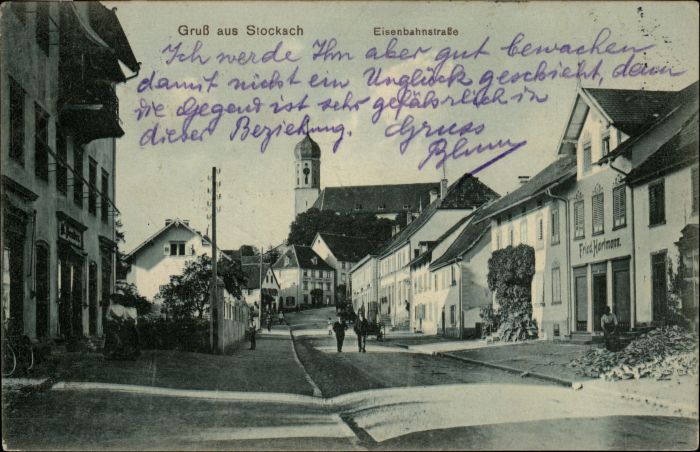 Gruß aus Stockach
Eisenbahnstraße
Ich werde Ihn aber gut bewachen
damit nicht ein Unglück geschieht, denn
die Gegend ist sehr gefährlich in
dieser Beziehung.
Gruss
Fried. Hartmann